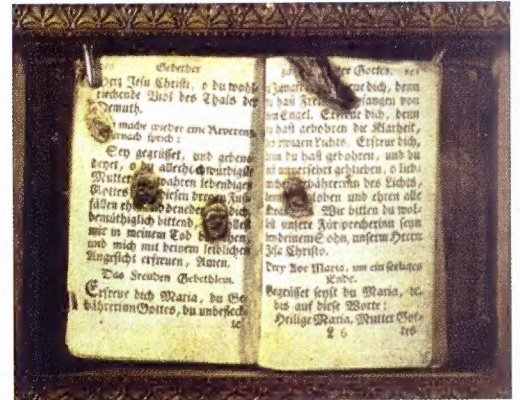 Gebether
Herz Jesu Christi, o du wohl-
riechende Viol des Thals der
Demuth.
machr wieder eine Reverenz
hernach sprich:
Sey gegrüsset, und gebene-
deyet, o du allerhochwürdigste
Mutter wahren lebendigen
Gottes diesen
fällen gebenedeyet dich,
demüthiglich bittend,
mir in meinem Tod
und mich mit deinem leiblichen
Angesicht erfreuen, Amen.
Das Freuden Gebethlein.
Erfreue dich Maria, du Ge-
bährerin Gottes, du unbefleck-
te
Gottes.
Jungfrau dich, denn
hast empfangen von
Engel. Erfreue dich, denn
hast gebohren die Klarheit,
ewigen Lichts. Erfreue dich,
denn du hast gebohren, und bu
unversehrt geblieben, o liebe
Gebährerin des Lichts,
loben und ehren alle
Wir bitten du wol-
unsere Fürsprecherin seyn
bey deinem Sohn, unserm Herrn
Jesu Christo.
Drey Ave Maria, um ein seeliges
Ende.
Gegrüsset seyst du Maria, rc.
bis auf diese Worte:
Heilige Maria, Mutter Got-
6 tes